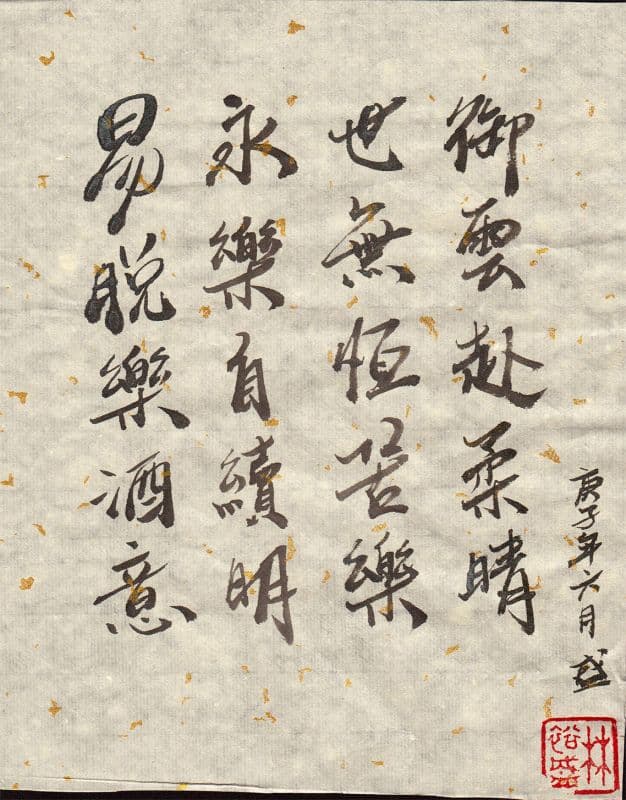 御雲赴柔晴
世無恒苦樂
永樂自續明
易脱樂酒意
庚子年六月 盛
林裕盛